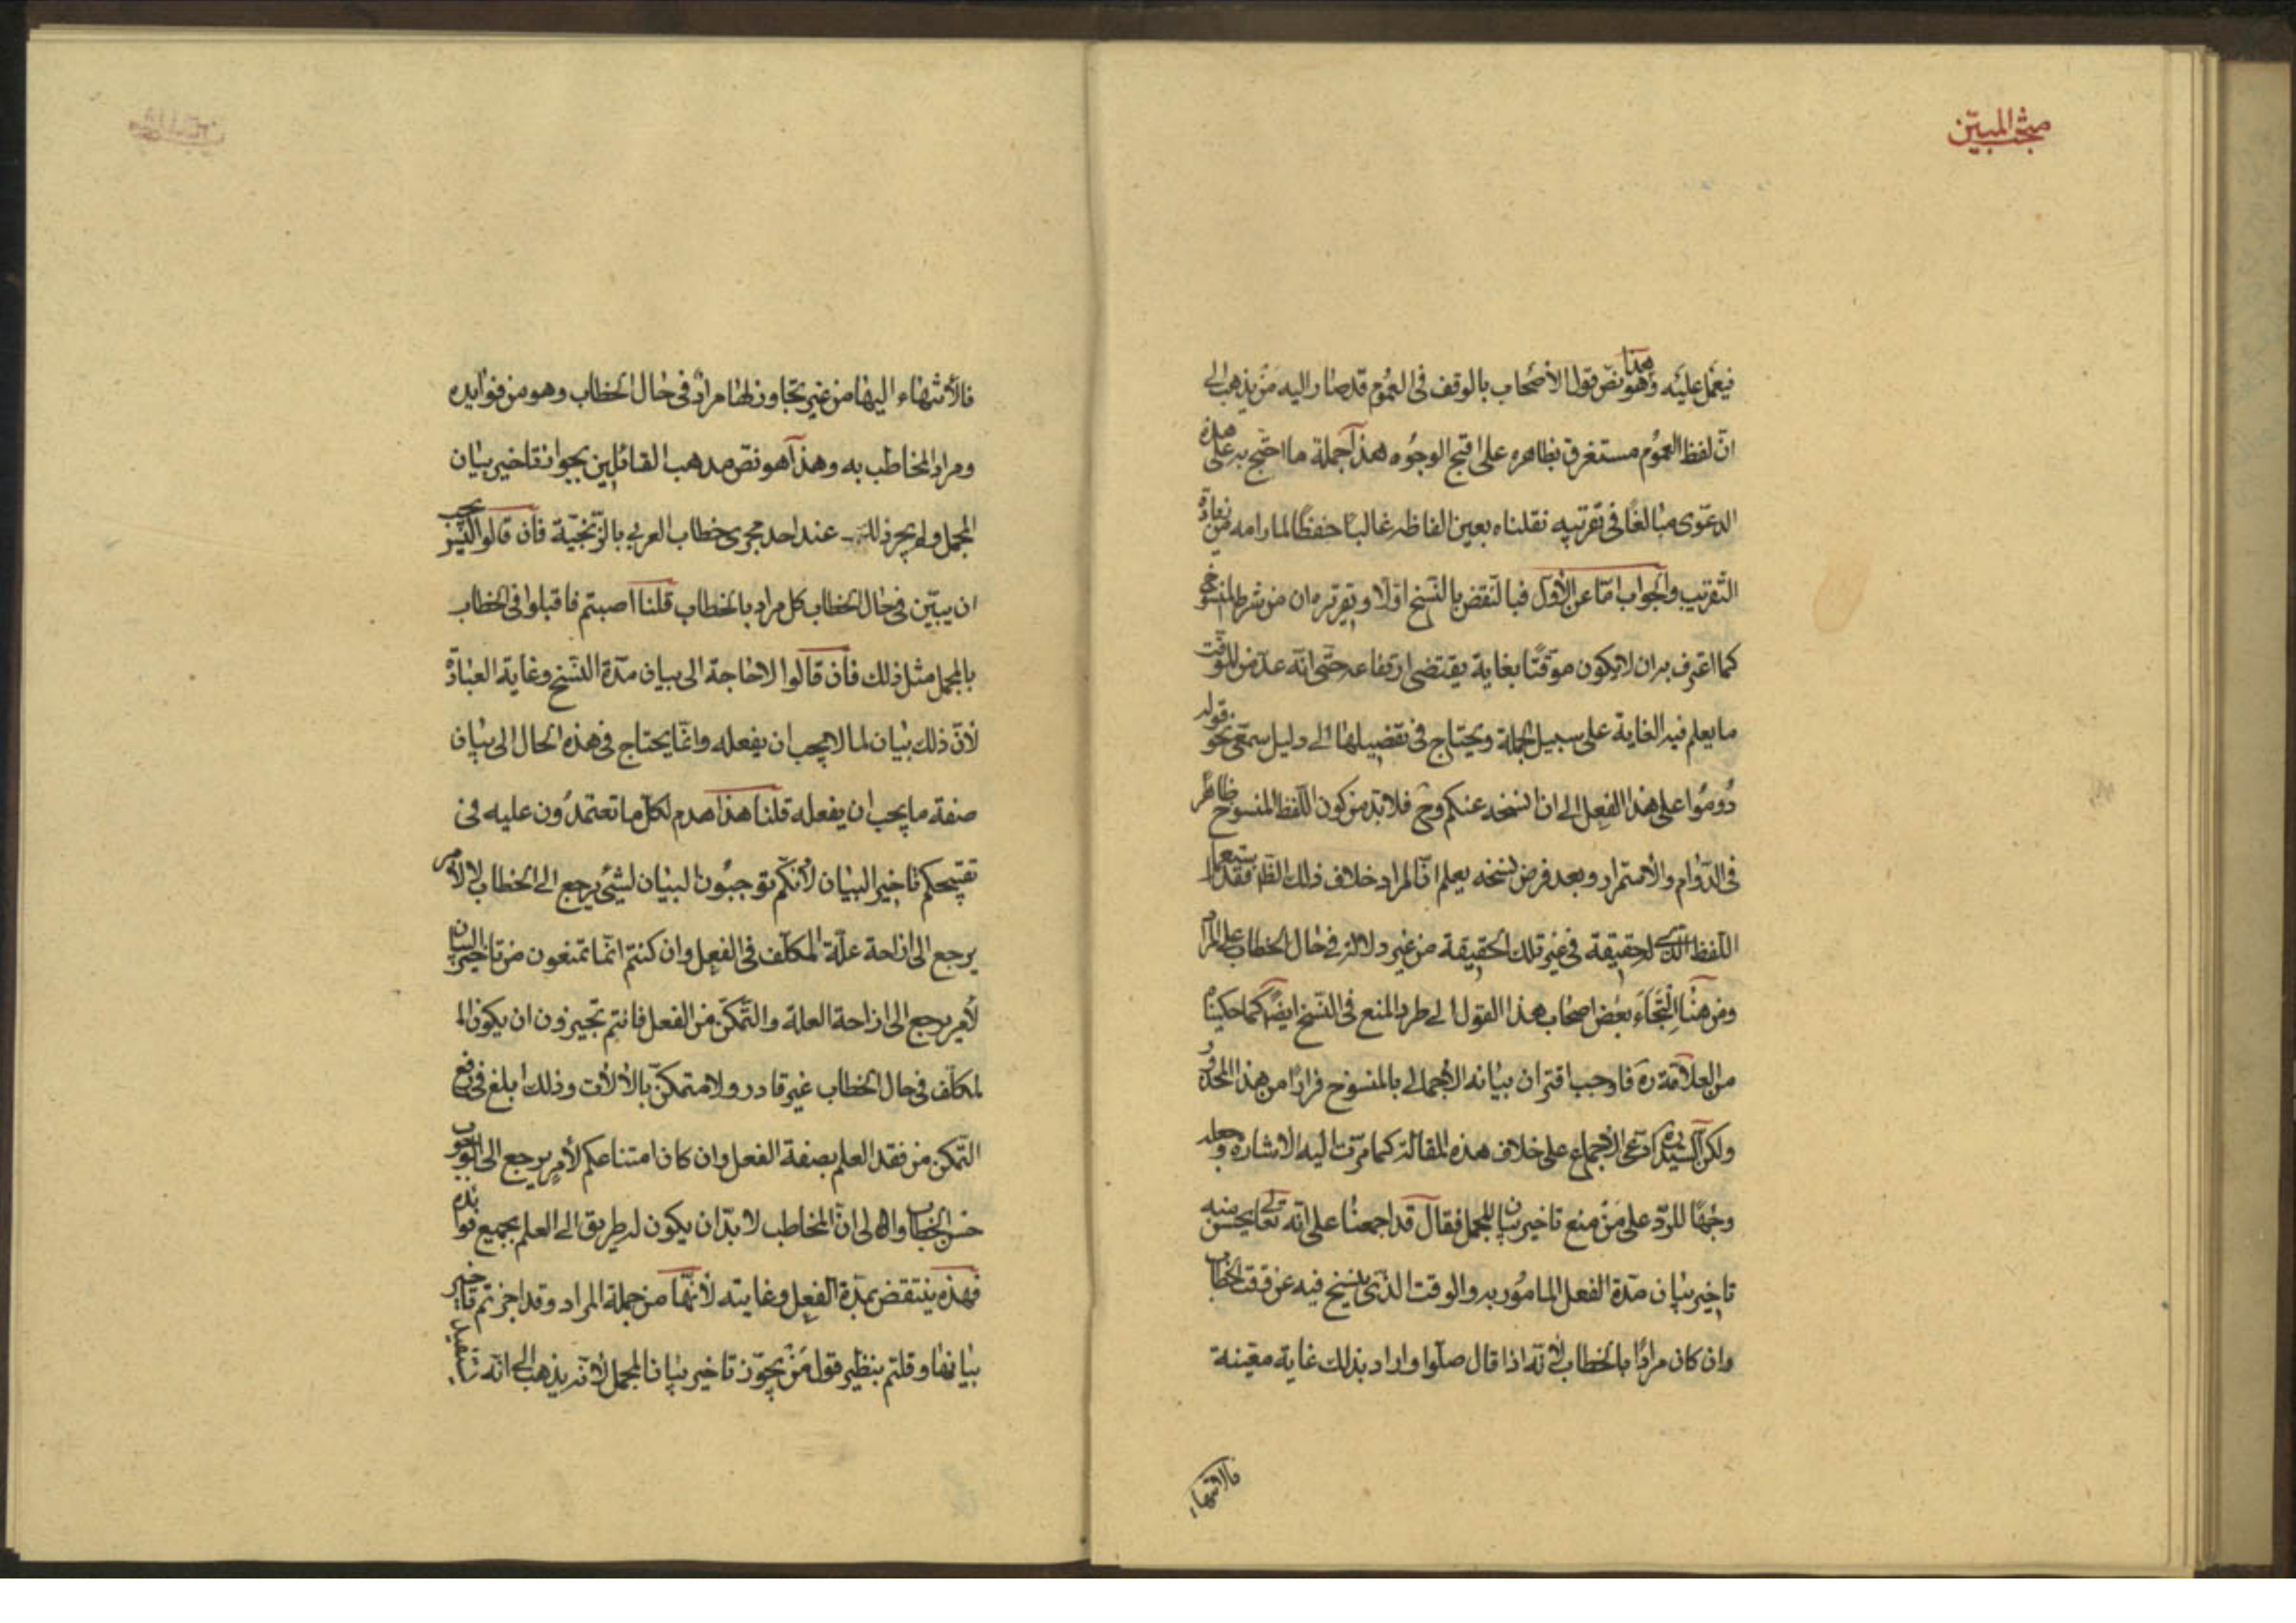 مبحث المبيّن
فيعمل عليه وهذا هو نصّ قول الأصحاب بالوقف في العموم قد صار اليه من يذهب الى
انّ لفظ العموم مستغرق بظاهره على اقبح الوجوه هذا جملة ما احتج به على هذه
الدعوى مبالغًا في تقريبه نقلناه بعين الفاظه غالبًا حفظًا لما رامه من زيادة
التقريب والجواب امّا عن الأوّل فبالنقض بالنسخ اوّلا وتقريره ان من شرط المنسوخ
كما اعترف به ان لا يكون موقّتًا بغاية يقتضي ارتفاعه حتّى انه عدّ من الموقّت
ما يعلم فيه الغاية على سبيل الجملة ويحتاج في تفصيلها الى دليل سمعي نحو قوله
دُومُوا على هذا الفعل الى ان انسخه عنكم وح فلا بدّ من كون اللّفظ المنسوخ ظاهرًا
في الدّوام والأستمرار وبعد فرض نسخه يعلم انّ المراد خلاف ذلك الظّ فقد استعمل
اللّفظ الّذي له حقيقة في غير تلك الحقيقة من غير دلالة في حال الخطاب على المراد
ومن هنا التجَأَ بعض اصحاب هذا القول الى طرد المنع في النّسخ ايضًا كما حكيناه
من العلّامة ره فاوجب اقتران بيانه الأجمالي بالمنسوخ فرارًا من هذا المحذور
ولكن السّيد ره ادّعى الأجماع على خلاف هذه المقالة كما مرّت اليه الاشارة وجعله
وجهًا للردّ على من منع تاخير بيان المجمل فقال قد اجمعنا على انّه تعالى يحسن منه
تاخير بيان مدّة الفعل المامور به والوقت الذي ينسخ فيه عن وقت الخطاب
وان كان مرادًا بالخطاب لأنّه اذا قال صلّوا واراد بذلك غاية معيّنة
فالانتهاء
فالأنتهاء اليها من غير تجاوز لها مرادٌ في حال الخطاب وهو من فوايده
ومراد المخاطب به وهذا هو نصّ مذهب القائلين بجواز تاخير بيان
المجمل ولم يجر ذلك عند احد مجرى خطاب العربي بالزّنجيّة فان قالوا اليس يجب
ان يبيّن في حال الخطاب كل مراد بالخطاب قلنا اصبتم فاقبلوا في الخطاب
بالمجمل مثل ذلك فان قالوا لا حاجة الى بيان مدّة النّسخ وغاية العبادة
لأنّ ذلك بيان لما لا يجب ان يفعله وانّما يحتاج في هذه الحال الى بيان
صفة ما يجب ان يفعله قلنا هذا هدم لكلّ ما تعتمدون عليه في
تقبيحكم تاخير البيان لأنّكم توجبُون البيان لشئ يرجع الى الخطاب لا لأمر
يرجع الى ازاحة علّة المكلّف في الفعل وان كنتم انّما تمنعون من تاخير البيان
لأمر يرجع الى ازاحة العلة والتّمكّن من الفعل فانتم تجيزون ان يكون ا
لمكلّف في حال الخطاب غير قادر ولا متمكّن بالألأت وذلك ابلغ في رفع
التّمكن من فقد العلم بصفة الفعل وان كان امتناعكم لأمرٍ يرجع الى وجوب
حسن الخطاب والى انّ المخاطب لا بدّ ان يكون له طريق الى العلم بجميع فوائده
فهذه ينتقض بمدّة الفعل وغايته لأنّها من جملة المراد وقد اجزتم تاخير
بيانها وقلتم بنظير قول من يجوّز تاخير بيان المجمل لأنه يذهب الى انّه يستفيد